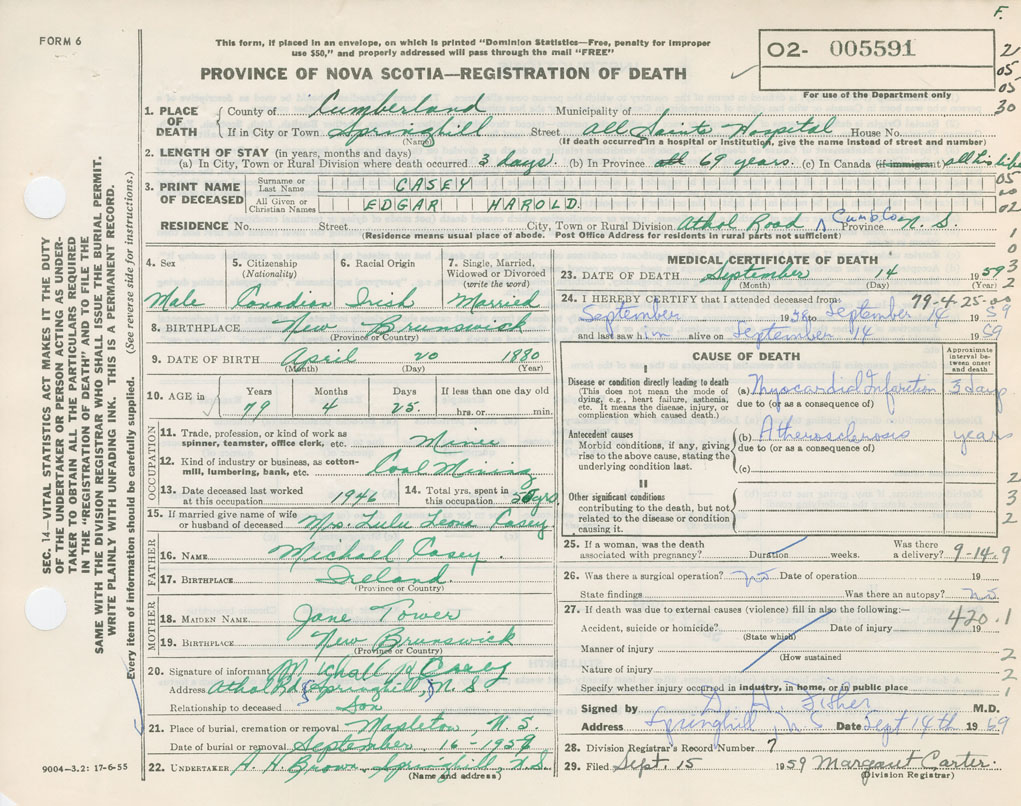 F.
FORM 6
This form, if placed in an envelope, on which is printed "Dominion Statistics—Free, penalty for improper
use $50," and properly addressed will pass through the mail "FREE"
O2- 005591
For use of the Department only
21
05
05
30
PROVINCE OF NOVA SCOTIA—REGISTRATION OF DEATH
SEC. 14—VITAL STATISTICS ACT MAKES IT THE DUTY
OF THE UNDERTAKER OR PERSON ACTING AS UNDER-
TAKER TO OBTAIN ALL THE PARTICULARS REQUIRED
IN THE "REGISTRATION OF DEATH" AND FILE THE
SAME WITH THE DIVISION REGISTRAR WHO SHALL ISSUE THE BURIAL PERMIT.
WRITE PLAINLY WITH UNFADING INK. THIS IS A PERMANENT RECORD.
Every item of information should be carefully supplied. (See reverse side for instructions.)
1. PLACE OF DEATH County of Cumberland Municipality of
If in City or Town Springhill Street All Saints Hospital House No.
(Name) (If death occurred in a hospital or institution, give the name instead of street and number)
2. LENGTH OF STAY (in years, months and days)
(a) In City, Town or Rural Division where death occurred 3 days. (b) In Province all 69 years. (c) In Canada (if immigrant) all his life
3. PRINT NAME OF DECEASED Surname or Last Name CASEY 05
All Given or Christian Names EDGAR HAROLD. 02
RESIDENCE No. Street City, Town or Rural Division Athol Road Cumb Co Province N. S.
(Residence means usual place of abode. Post Office Address for residents in rural parts not sufficient)
4. Sex 5. Citizenship (Nationality) 6. Racial Origin 7. Single, Married, Widowed or Divorced (write the word)
Male Canadian Irish Married
8. BIRTHPLACE New Brunswick
(Province or Country)
9. DATE OF BIRTH April 20 1880
(Month) (Day) (Year)
10. AGE in Years Months Days If less than one day old
79 4 25. hrs. or min.
OCCUPATION
11. Trade, profession, or kind of work as spinner, teamster, office clerk, etc. Miner
12. Kind of industry or business, as cotton-mill, lumbering, bank, etc. Coal Mining
13. Date deceased last worked at this occupation. 1946 14. Total yrs. spent in this occupation. yrs
15. If married give name of wife or husband of deceased Mrs. Lulu Leona Casey
FATHER
16. NAME Michael Casey.
17. BIRTHPLACE Ireland.
(Province or Country)
MOTHER
18. MAIDEN NAME Jane Tower
19. BIRTHPLACE New Brunswick
(Province or Country)
20. Signature of informant Casey
Address Athol Rd. Springhill, N. S
Relationship to deceased Son
21. Place of burial, cremation or removal Mapleton, N. S.
Date of burial or removal September. 16 - 1959
22. UNDERTAKER A. H. Brown, Springhill, N.S.
(Name and address)
9004—3.2: 17-6-55
MEDICAL CERTIFICATE OF DEATH
23. DATE OF DEATH September 14 1959
(Month) (Day) (Year)
24. I HEREBY CERTIFY that I attended deceased from: 79-4-25-
September 19 to September 14 1959
and last saw him alive on September 14 1959
CAUSE OF DEATH
Approximate interval between onset and death
I
Disease or condition directly leading to death
(This does not mean the mode of dying, e.g., heart failure, asthenia, etc. It means the disease, injury, or complication which caused death.)
(a) Myocardial Infarction 3 days
due to (or as a consequence of)
Antecedent causes
Morbid conditions, if any, giving rise to the above cause, stating the underlying condition last.
(b) Atherosclerosis years
due to (or as a consequence of)
(c)
II
Other significant conditions contributing to the death, but not related to the disease or condition causing it.
2
3
2
25. If a woman, was the death associated with pregnancy? Duration weeks. Was there a delivery? 9-14-9
26. Was there a surgical operation? no Date of operation 19
State findings Was there an autopsy? no.
27. If death was due to external causes (violence) fill in also the following:—
420.1
Accident, suicide or homicide? Date of injury 19
(State which)
Manner of injury 2
(How sustained
Nature of injury 2
Specify whether injury occurred in industry, in home, or in public place 1
Signed by A. H. Fisher M.D.
Address Springhill, N S Date Sept 14th 1959
28. Division Registrar's Record Number 7
29. Filed Sept. 15 1959 Margaret Carter.
(Division Registrar)